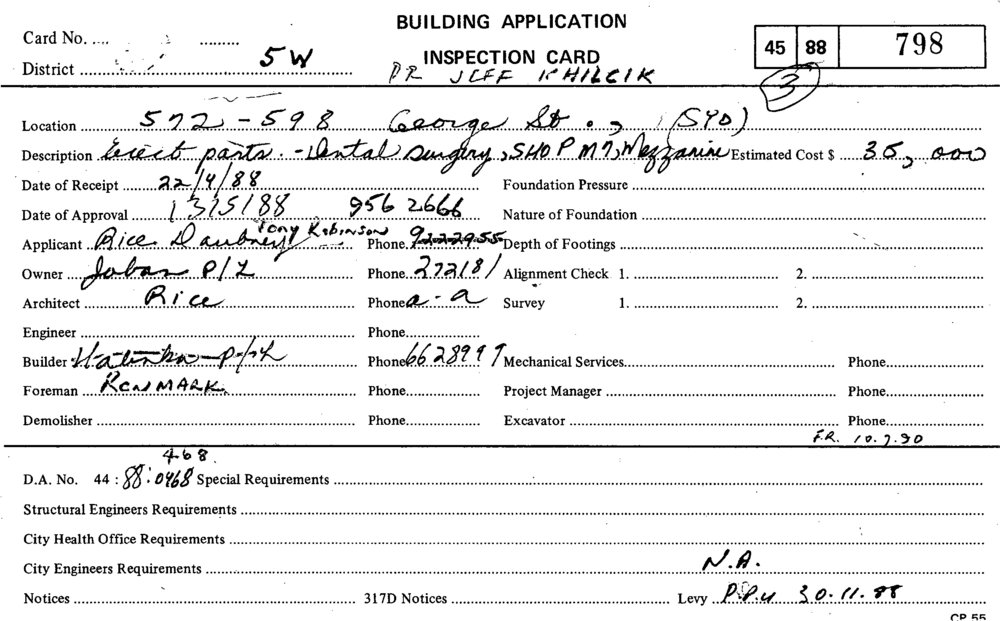 BUILDING APPLICATION
Card No. ....
INSPECTION CARD 45 88 798
District 5 W
DR JEFF 3
Location 572 - 598 George St. , (SYD)
Description Erect parts. - Dental Surgery, SHOP M7, Mezzanine Estimated Cost $ 35,000
Date of Receipt 22/4/88 Foundation Pressure
Date of Approval 13/5/88 956 2666 Nature of Foundation
Tony Robinson
Applicant Rice Daubney Phone. 9222955 Depth of Footings
Owner P/L Phone. 272181 Alignment Check 1. 2.
Architect Rice Phone a - a Survey 1. 2.
Engineer Phone
Builder P/L Phone 6628997 Mechanical Services Phone
Foreman RENMARK Phone Project Manager Phone
Demolisher Phone Excavator Phone
F.R. 10.7.90
468.
D.A. No. 44 : 88:0468 Special Requirements
Structural Engineers Requirements
City Health Office Requirements
City Engineers Requirements N.A.
Notices 317D Notices Levy 30.11.88
CP 55